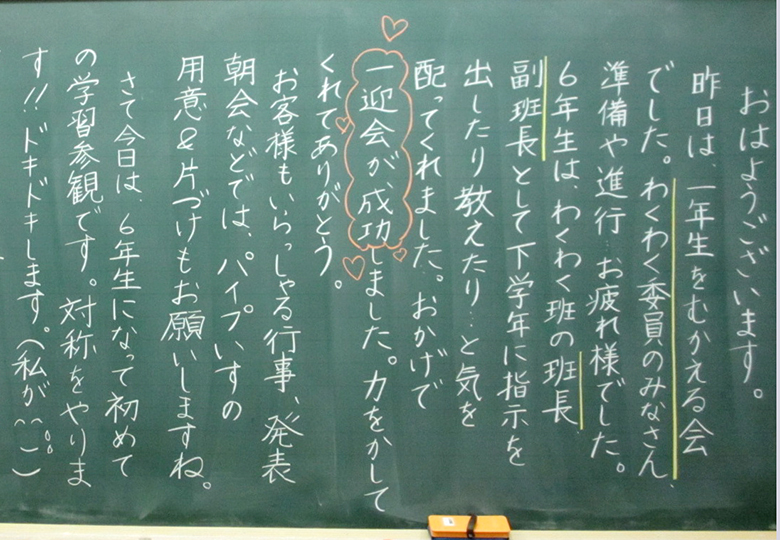 おはようございます。
昨日は、一年生をむかえる会
でした。わくわく委員のみなさん、
準備や進行…お疲れ様でした。
6年生は、わくわく班の班長
副班長として下学年に指示を
出したり教えたり…と気を
配ってくれました。おかげで
一迎会が成功しました。力をかして
くれてありがとう。
お客様もいらっしゃる行事、発表
朝会などでは、パイプいすの
用意&片づけもお願いしますね。
さて今日は、6年生になって初めて
の学習参観です。対称をやりま
す!!ドキドキします。(私が^^;)